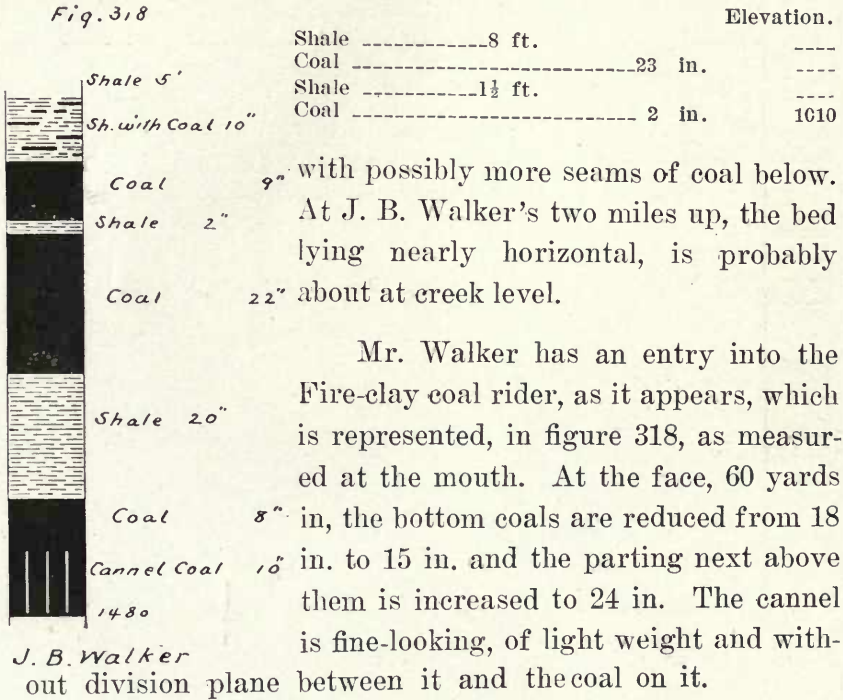 Fig. 318
Shale 5'
Sh. with Coal 10"
Coal 9"
Shale 2"
Coal 22"
Shale 20"
Coal 8"
Cannel Coal 10"
1480
J. B. Walker
Elevation.
Shale ------------8 ft. ----
Coal ---------------------------23 in. ----
Shale -----------1½ ft. ----
Coal --------------------------- 2 in. 1010
with possibly more seams of coal below.
At J. B. Walker's two miles up, the bed
lying nearly horizontal, is probably
about at creek level.
Mr. Walker has an entry into the
Fire-clay coal rider, as it appears, which
is represented, in figure 318, as measur-
ed at the mouth. At the face, 60 yards
in, the bottom coals are reduced from 18
in. to 15 in. and the parting next above
them is increased to 24 in. The cannel
is fine-looking, of light weight and with-
out division plane between it and the coal on it.